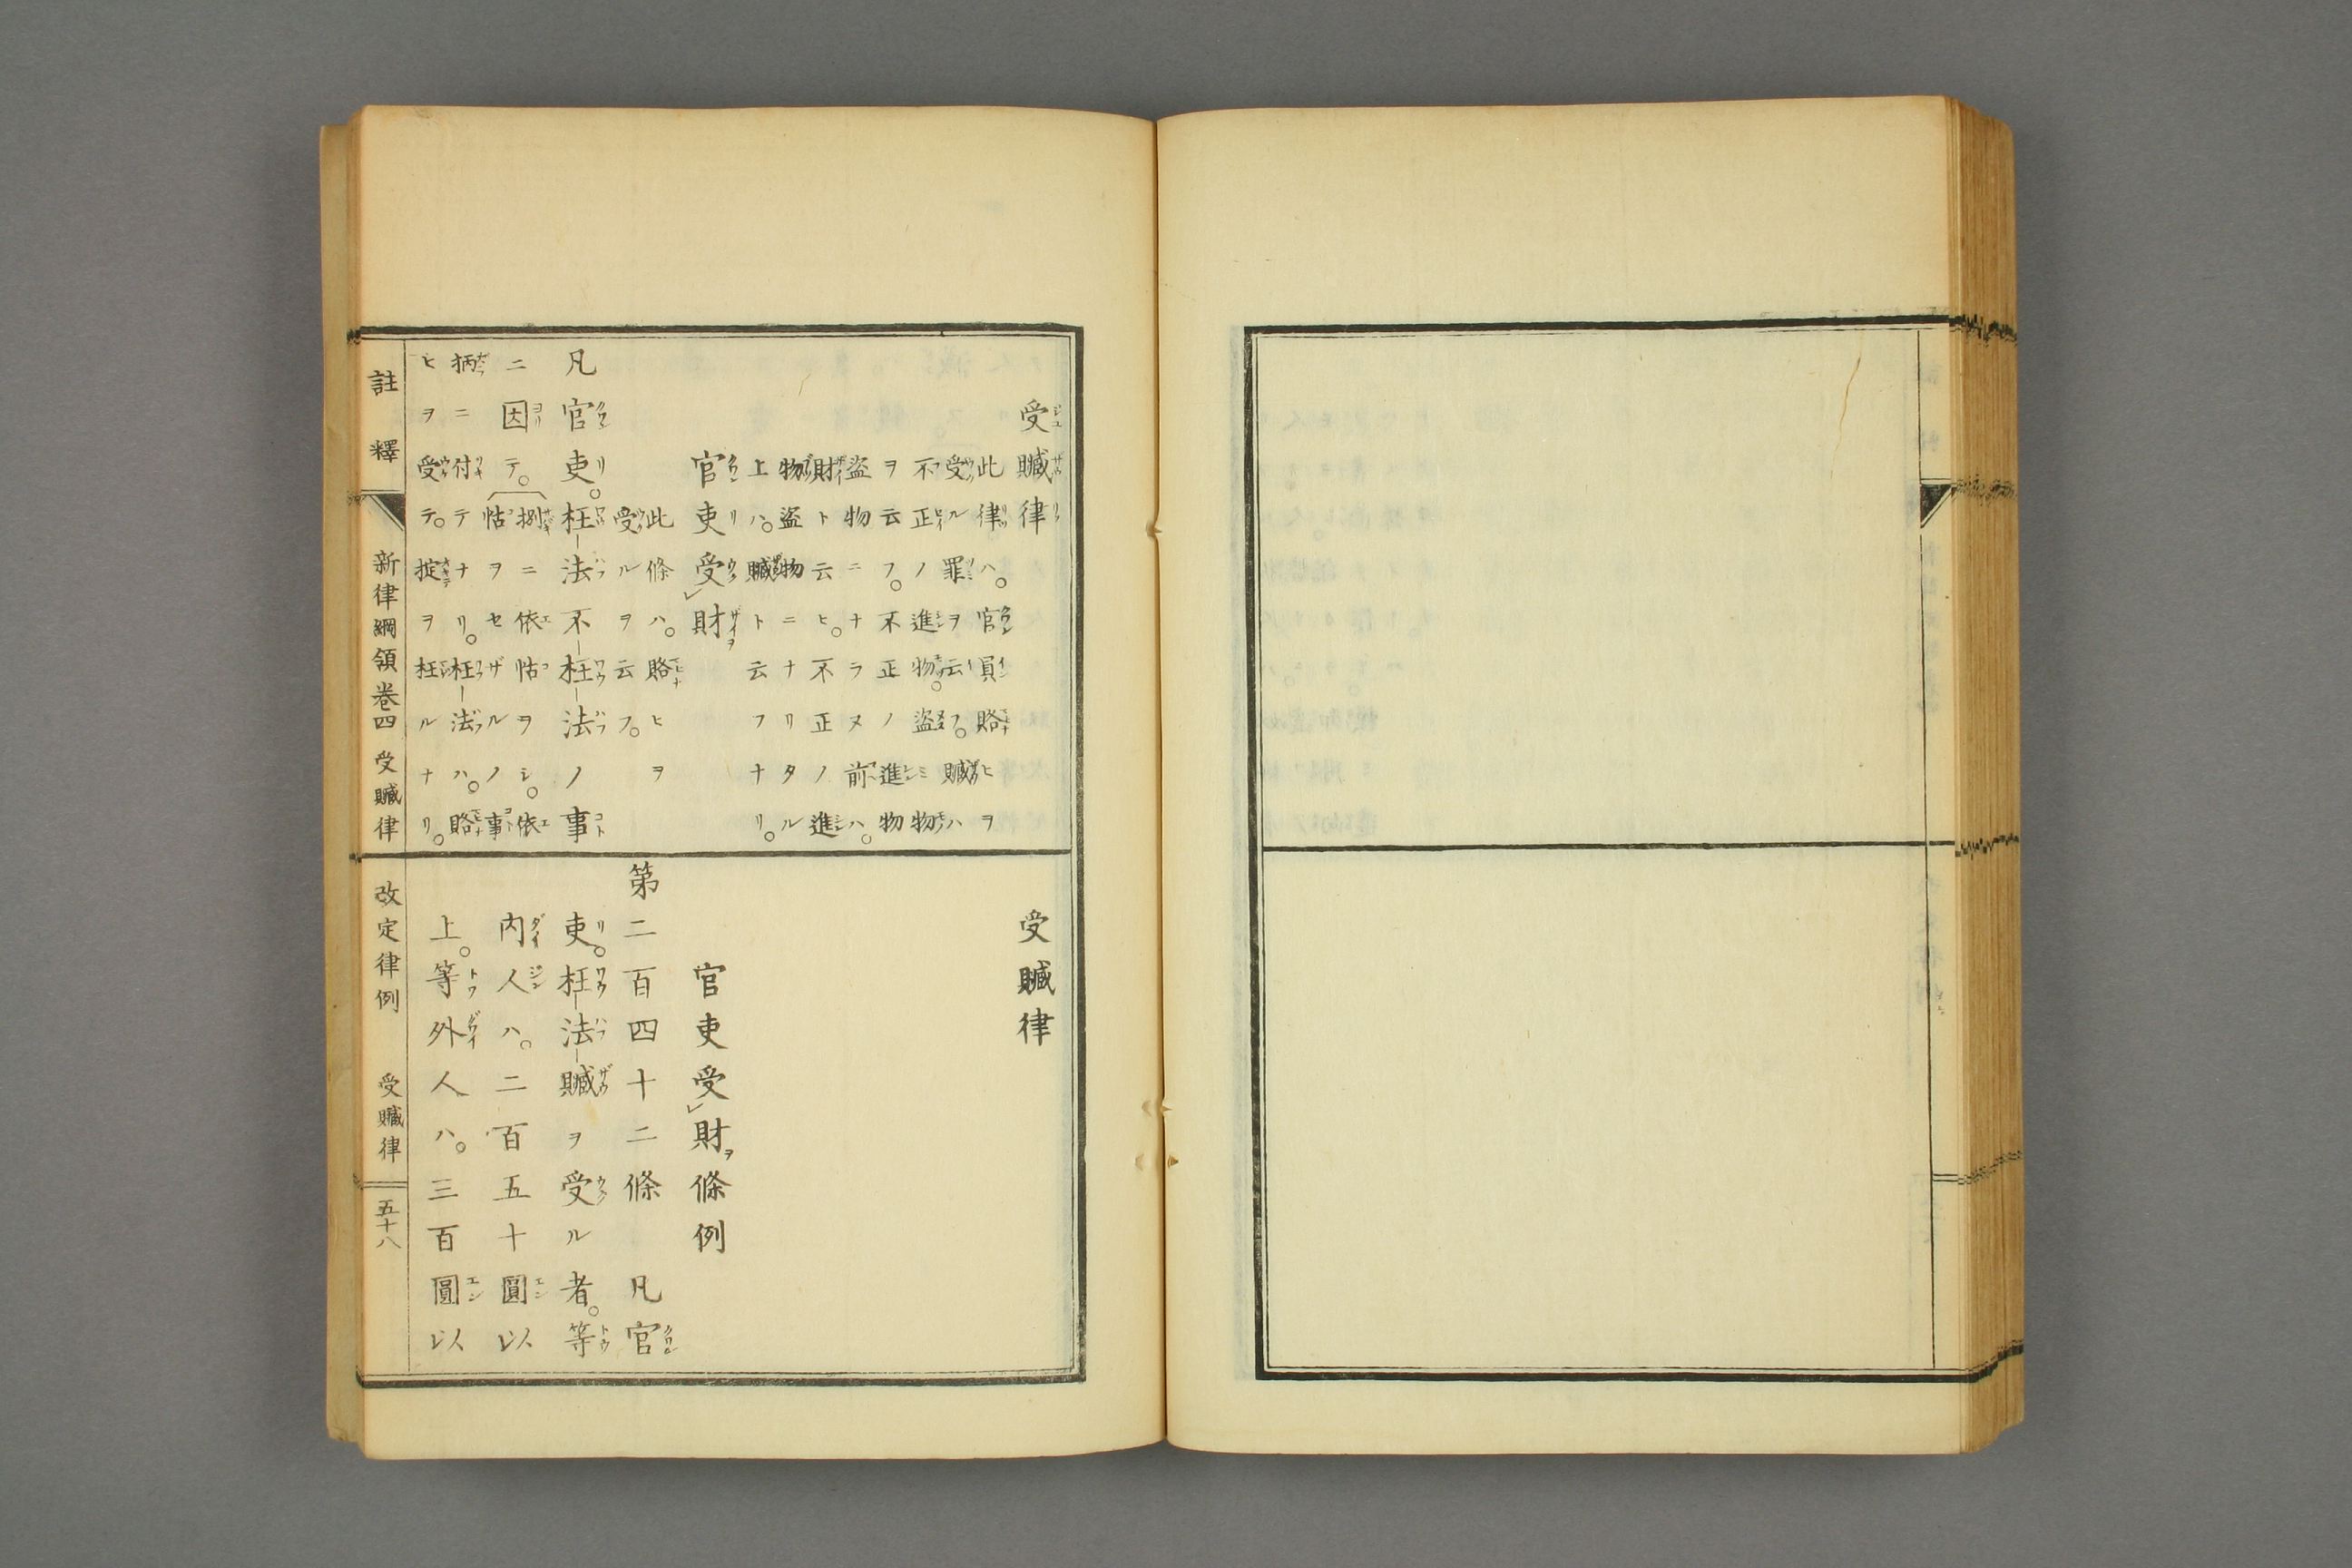 受贓律
此律ハ。官員賂ヒヲ
受ル罪ヲ云フ。贓ハ
不正ノ進物。盜ミ物
ヲ云フ。不正ノ進物
盜物ニナラヌ前ハ。
財ト云ヒ。不正ノ進
物盜物ニナリタル
上ハ。贓ト云フナリ。
官吏受財
此條ハ。賂ヒヲ
受ルヲ云フ。
凡官吏。枉法不枉法ノ事
ニ因テ。
捌ニ依怙ヲシ。依
怙ヲセザルノ事
柄ニ付テナリ。枉法ハ。賂
ヒヲ受テ。掟ヲ枉ルナリ。
受贓律
官吏受財ヲ條例
第二百四十二條 凡官
吏。枉法贓ヲ受ル者。等
内人ハ。二百五十圓以
上。等外人ハ。三百圓以
註釋 新律綱領卷四 受贓律 改定律例 受贓律 五十八